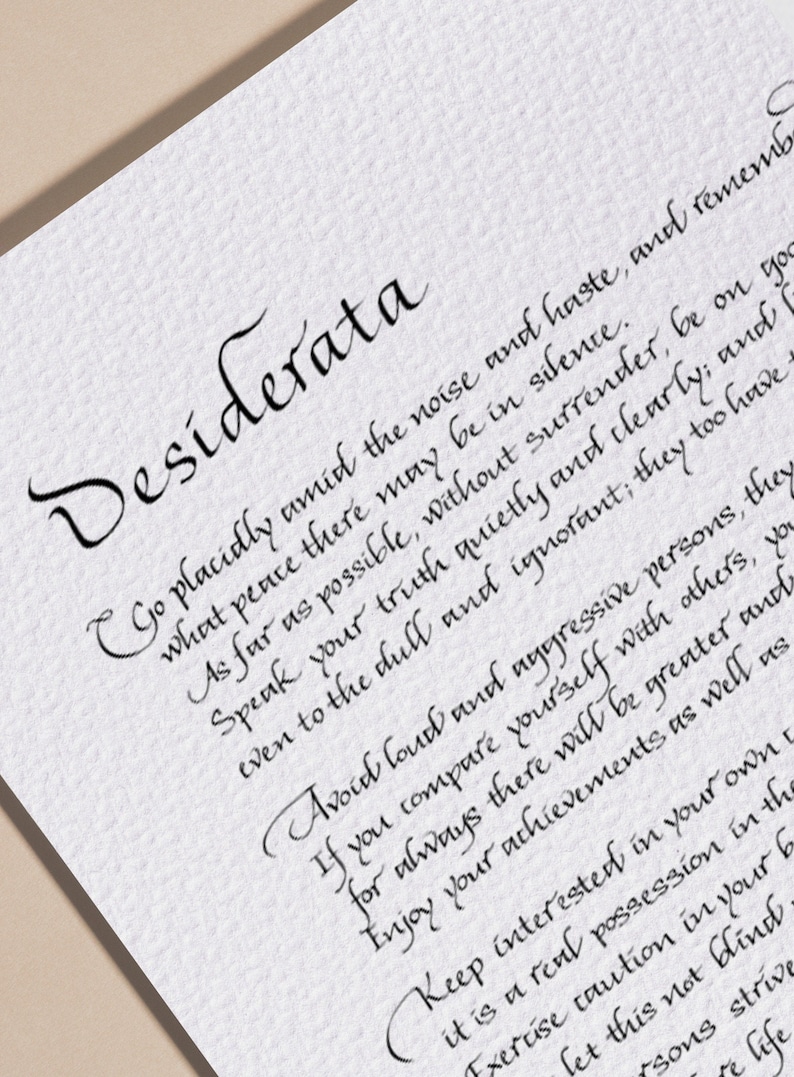 Desiderata
Go placidly amid the noise and haste, and remember
what peace there may be in silence.
As far as possible, without surrender, be on
Speak your truth quietly and clearly; and
even to the dull and ignorant; they too have
Avoid loud and aggressive persons, they
If you compare yourself with others,
for always there will be greater and
Enjoy your achievements as well as
Keep interested in your own
it is a real possession in the
Exercise caution in your
let this not blind
strive
life